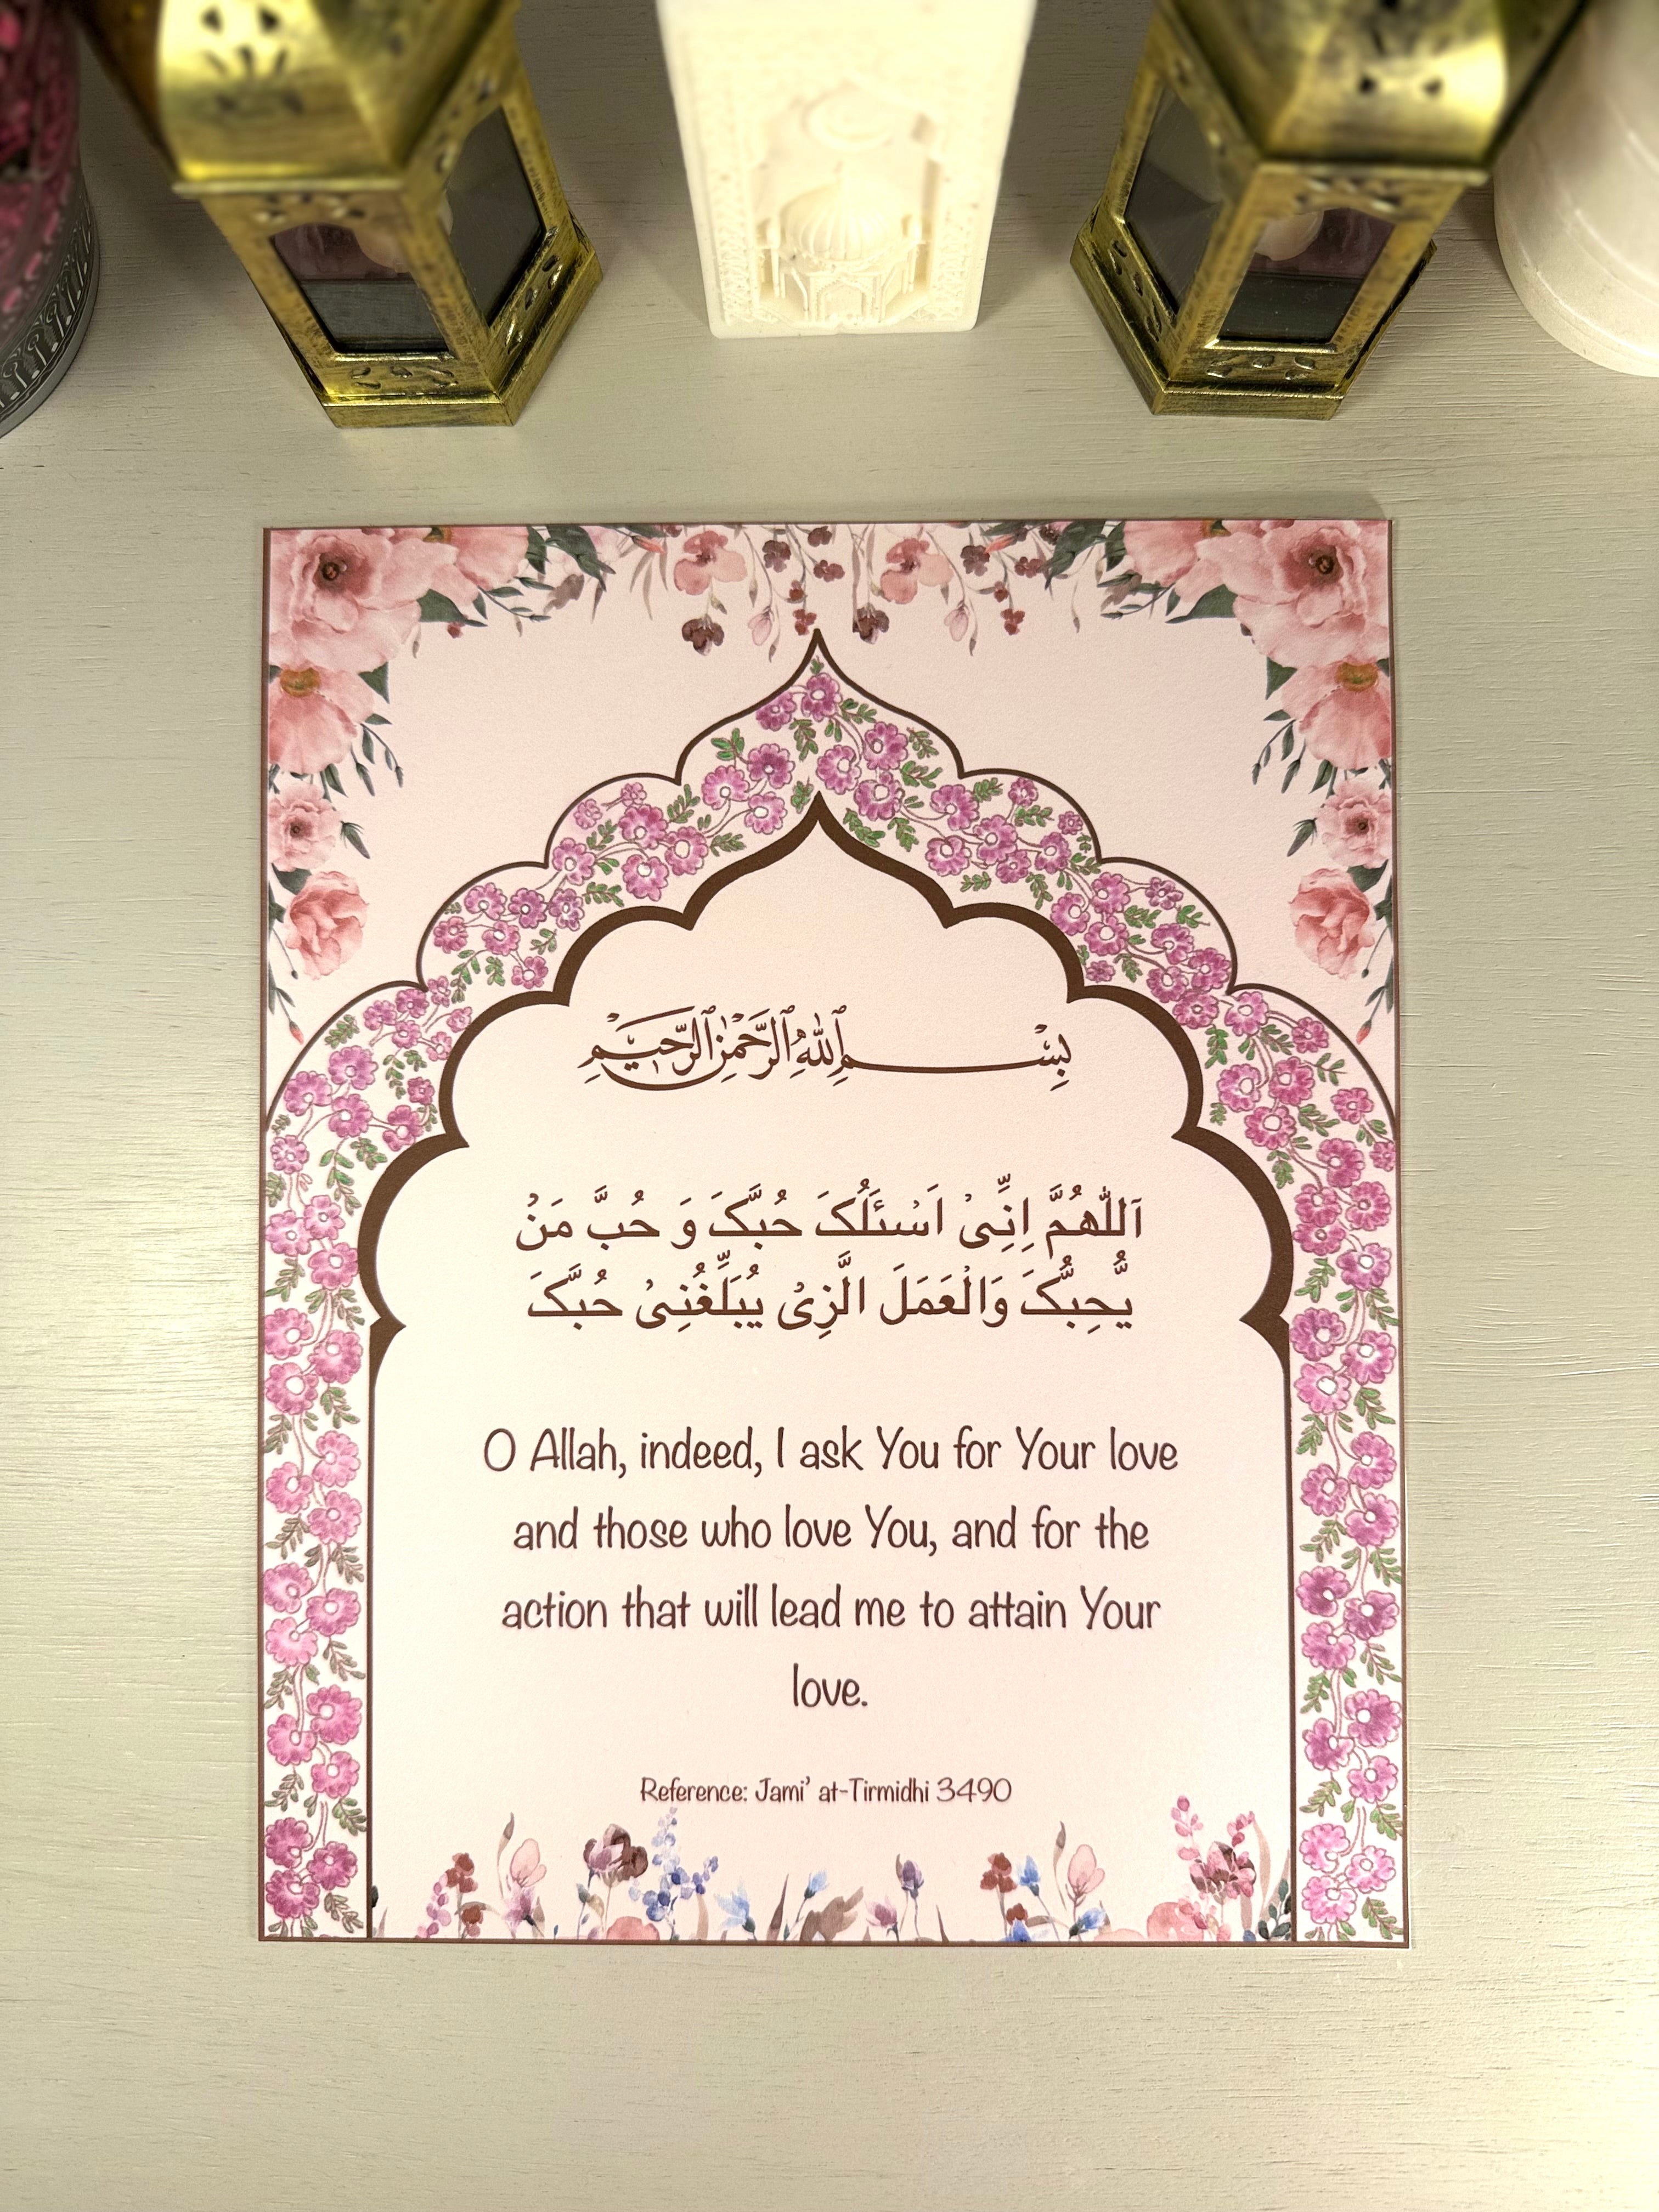 بِسْمِ ٱللَّهِ ٱلرَّحْمَٰنِ ٱلرَّحِيمِ
اَللّٰهُمَّ اِنِّىْ اَسْئَلُکَ حُبَّکَ وَ حُبَّ مَنْ
يُّحِبُّکَ وَالْعَمَلَ الَّزِىْ يُبَلِّغُنِىْ حُبَّکَ
O Allah, indeed, I ask You for Your love
and those who love You, and for the
action that will lead me to attain Your
love.
Reference: Jami' at-Tirmidhi 3490